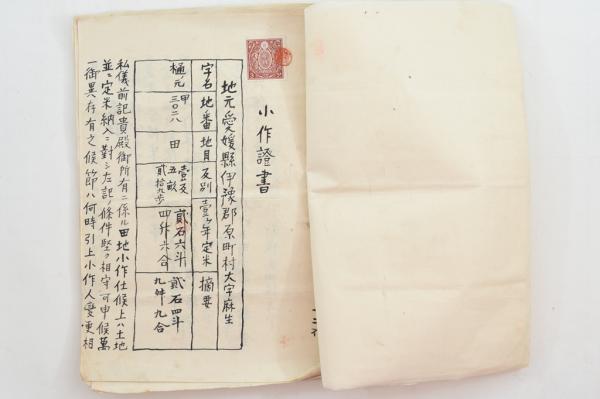 小作證書
地元愛媛縣伊豫郡原町村大字麻生
字名 地番 地目 反別 壹ヶ年定米 摘要
樋ノ元 甲三〇二八 田 壹反五畝貳拾九歩 貳石六斗四升六合 貳石四斗九舛九合
私儀前記貴殿御所有ニ係ル田地小作仕候上ハ土地
並ニ定米納入ニ對シ左記ノ條件堅ク相守可申候萬
一御異存有之候節ハ何時引上小作人變更相